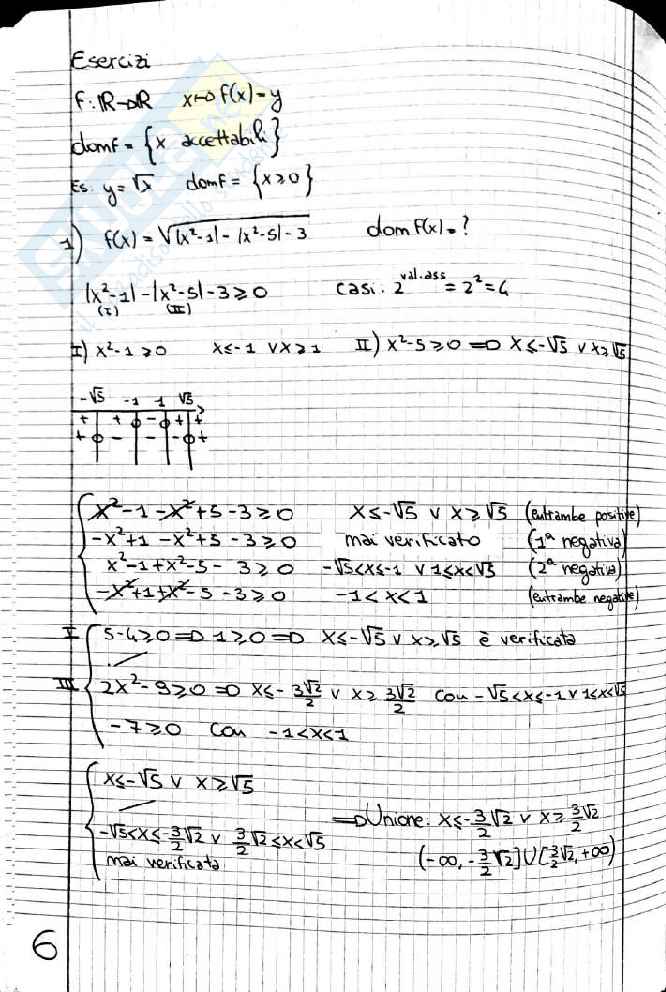 Esercizi
f: ℝ→ℝ x↦f(x)=y
domf = {x accettabili}
Es. y=√x domf = {x≥0}
1) f(x) = √(|x²-1| - |x²-5| - 3) dom f(x) = ?
|x²-1| - |x²-5| - 3 ≥ 0 casi: 2^val.ass = 2² = 4
(I) (II)
I) x²-1 ≥ 0 x≤-1 ∨ x≥1 II) x²-5≥0 ⇒ x≤-√5 ∨ x≥√5
-√5 -1 1 √5
+ + - + +
+ - - - +
x²-1-x²+5-3≥0 x≤-√5 ∨ x≥√5 (entrambe positive)
-x²+1-x²+5-3≥0 mai verificato (1ª negativa)
x²-1+x²-5-3≥0 -√5<x≤-1 ∨ 1≤x<√5 (2ª negativa)
-x²+1+x²-5-3≥0 -1<x<1 (entrambe negative)
I 5-4≥0 ⇒ 1≥0 ⇒ x≤-√5 ∨ x≥√5 è verificata
III 2x²-9≥0 ⇒ x≤-3√2/2 ∨ x≥3√2/2 con -√5<x≤-1 ∨ 1≤x<√5
-7≥0 con -1<x<1
x≤-√5 ∨ x≥√5
-√5<x≤-3/2√2 ∨ 3/2√2≤x<√5 ⇒ Unione: x≤-3/2√2 ∨ x≥3/2√2
mai verificata (-∞, -3/2√2] ∪ [3/2√2, +∞)
6